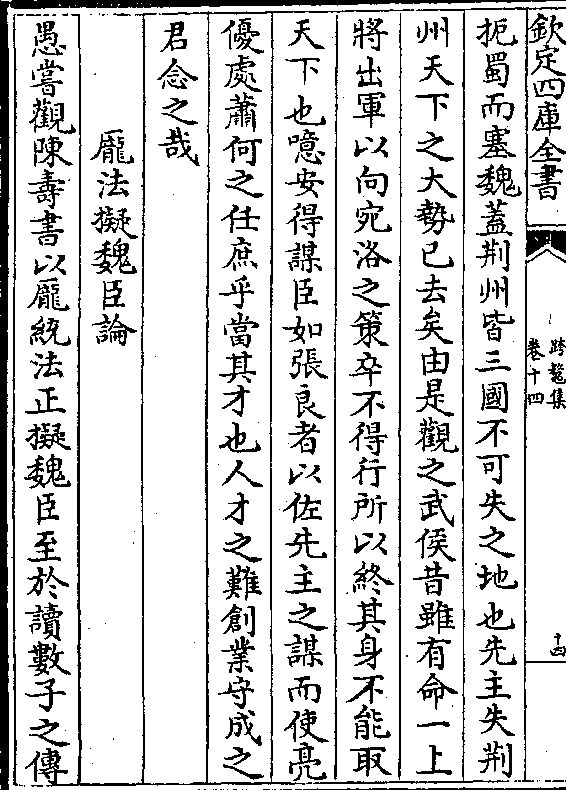 欽定四庫全書
跨鼇集
卷十四
十四
扼蜀而塞魏蓋荆州皆三國不可失之地也先主失荆
州天下之大勢已去矣由是觀之武侯昔雖有命一上
將出軍以向宛洛之策卒不得行所以終其身不能取
天下也噫安得謀臣如張良者以佐先主之謀而使亮
優處蕭何之任庶乎當其才也人才之難創業守成之
君念之哉
龎法擬魏臣論
愚嘗觀陳壽書以龎統法正擬魏臣至於讀數子之傳